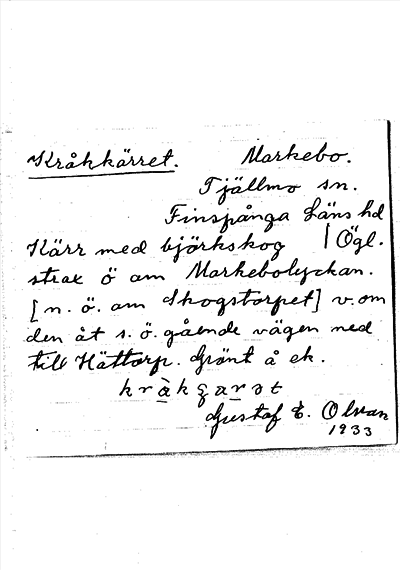 Kråkkärret. Markebo.
Tjällmo sn.
Finspånga Läns hd
Kärr med björkskog | Ögl.
strax ö om Markebolyckan.
[n. ö. om Skogstorpet] v. om
den åt s. ö. gående vägen ned
till Hättorp. Gränt å ek.
Gustaf E. Olvan
1933